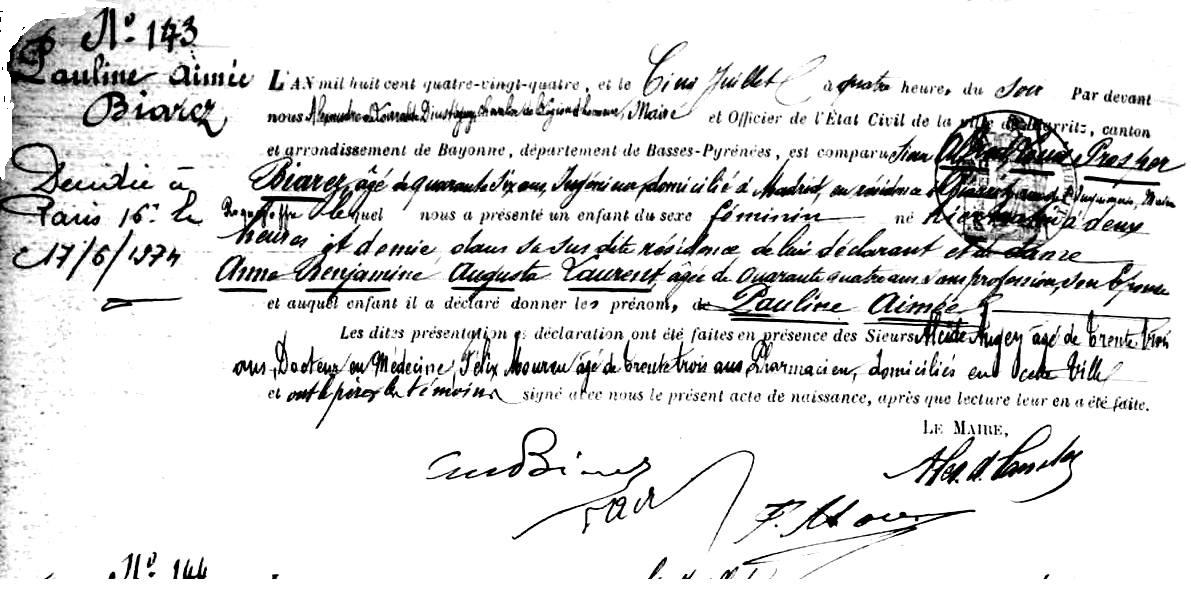 Nº 143
Pauline Aimée
Biarez
Décédée à
Paris 16e le
17/6/1974
L'AN mil huit cent quatre-vingt-quatre, et le Cinq Juillet à quatre heures du Soir Par devant
nous Alexandre Chevalier de la Légion d'honneur, Maire et Officier de l'État Civil de la ville de Biarritz, canton
et arrondissement de Bayonne, département de Basses-Pyrénées, est comparu Sieur Prosper
Biarez, âgé de quarante six ans, Ingénieur, domicilié à Madrid, en résidence à Biarritz, Maison
lequel nous a présenté un enfant du sexe féminin né hier matin à deux
heures et demie, dans sa sus dite résidence, de lui déclarant et de dame
Anne Benjamine Augusta Laurent, âgée de quarante quatre ans, sans profession, son Epouse
et auquel enfant il a déclaré donner les prénoms de Pauline Aimée
Les dites présentation et déclaration ont été faites en présence des Sieurs Augey âgé de trente trois
ans, Docteur en Médecine, Félix Moureu âgé de trente trois ans, Pharmacien, domiciliés en cette Ville
et ont le père et les témoins signé avec nous le présent acte de naissance, après que lecture leur en a été faite.
LE MAIRE,
Nº 144